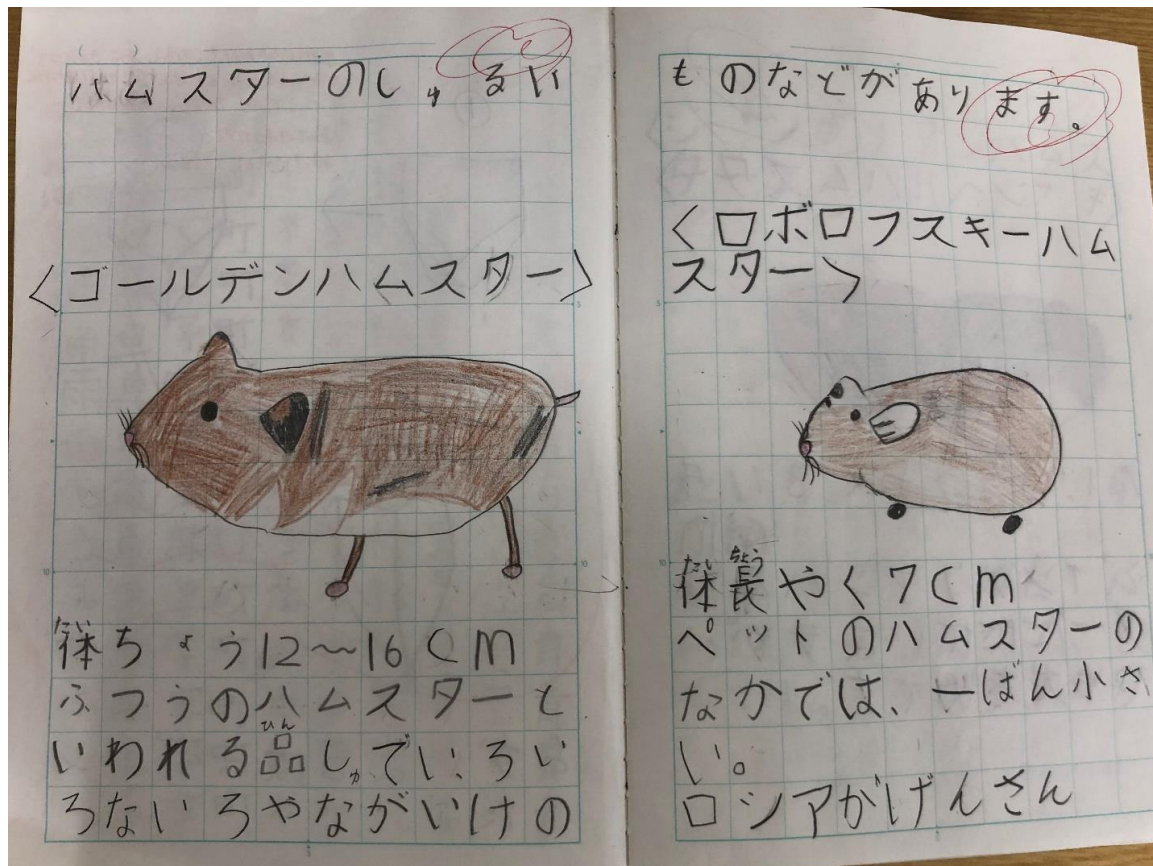 ハムスターのしゅるい
<ゴールデンハムスター>
体ちょう12〜16cm
ふつうのハムスターと
ひん
いわれる品しゅでいろい
ろないろやながいけの
ものなどがあります。
<ロボロフスキーハム
スター>
たい ちょう
体長やく7cm
ペットのハムスターの
なかでは、一ばん小さ
い。
ロシアがげんさん